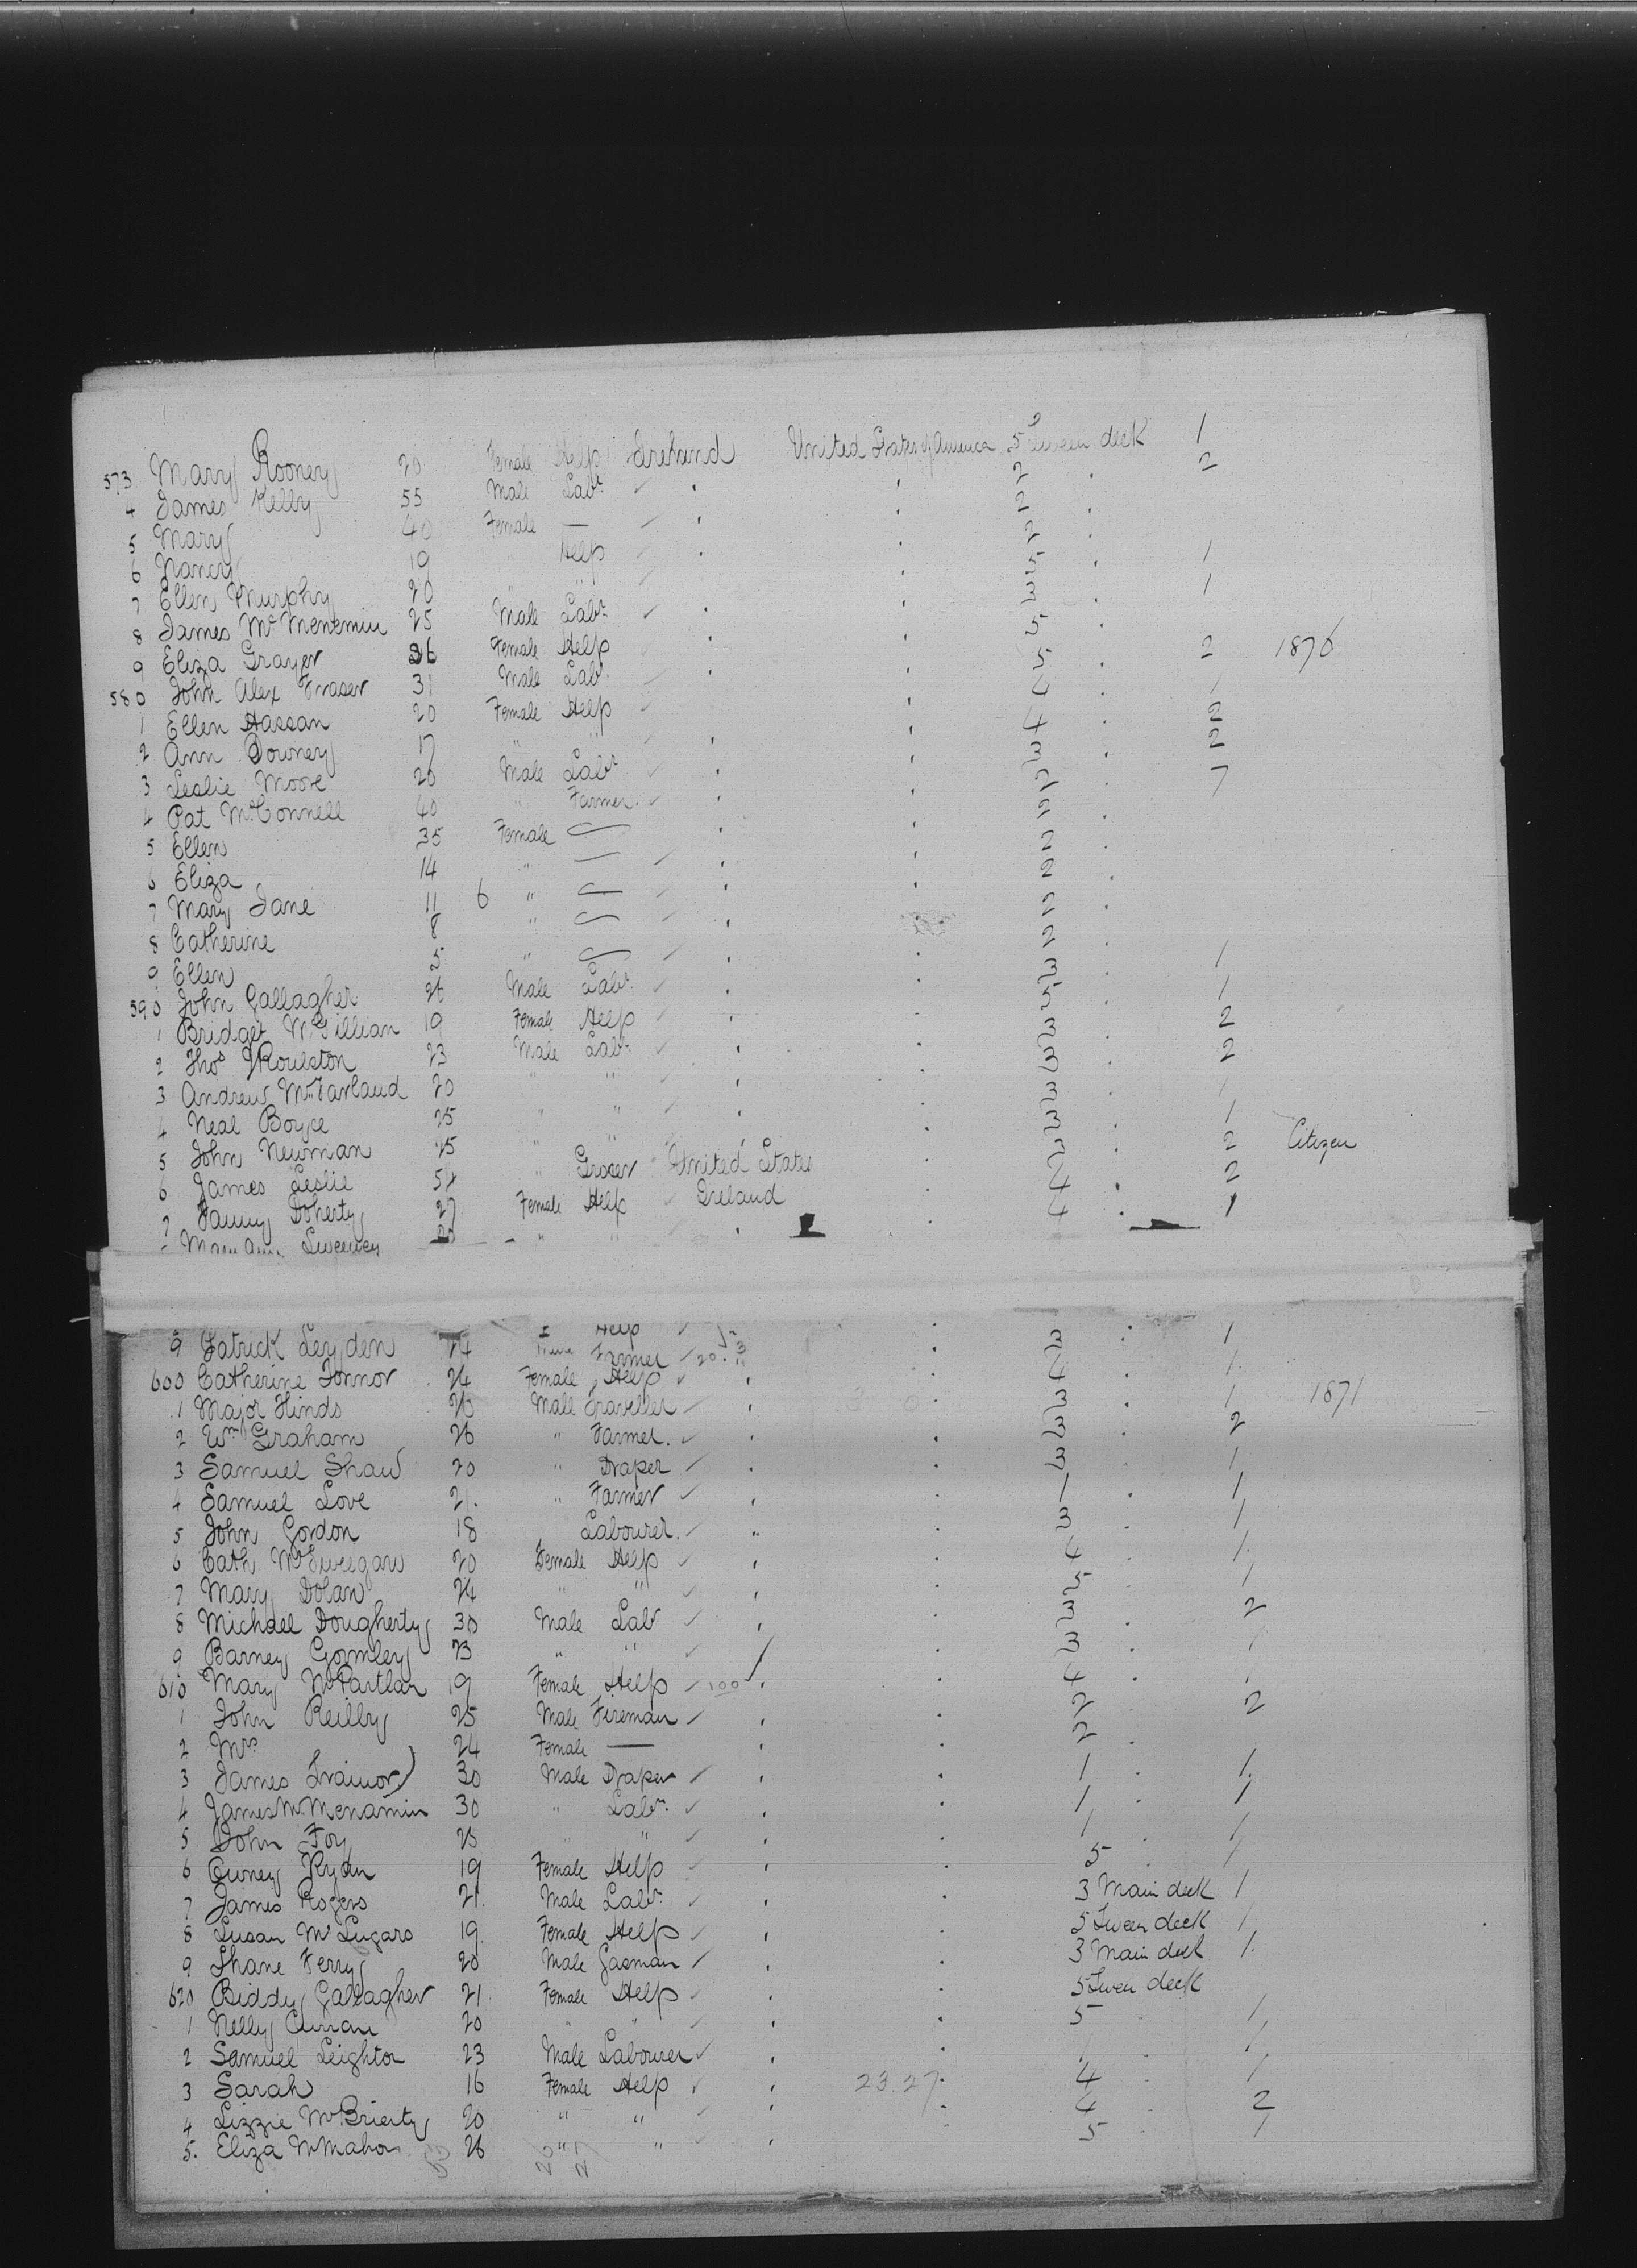 573 Mary Rooney 20 Female Help Ireland United States of America 5 Tween deck 1
4 James Kelly 55 Male Labr 2 2
5 Mary 40 Female — 2
6 Nancy 19 " Help 2
7 Ellen Murphy 20 " " 5 1
8 James McMenemin 25 Male Labr 3 1
9 Eliza Grayer 36 Female Help 5
580 John Alex Fraser 31 Male Labr 5 2 1876
1 Ellen Hassan 20 Female Help 4 1
2 Ann Downey 17 " " 4 2
3 Leslie Moore 20 Male Labr 3 2
4 Pat McConnell 40 " Farmer 2 7
5 Ellen 35 Female 2
6 Eliza 14 " 2
7 Mary Jane 11 6 " 2
8 Catherine 8 " 2
9 Ellen 5 " 2
590 John Gallagher 26 Male Labr 3 1
1 Bridget McGillian 19 Female Help 5 1
2 Thos Roulston 23 Male Labr 3 2
3 Andrew McFarland 20 " " 3 2
4 Neal Boyce 25 " " 3 1
5 John Newman 25 " " 3 1
6 James Leslie 54 " Grocer United States 2 2 Citizen
7 Fanny Doherty 27 Female Help Ireland 4 2
Mary Ann Sweeney 20 " " 4 1
Help
9 Patrick Leyden 74 Farmer 3 1
600 Catherine Connor 24 Female Help 4 1
1 Major Hinds 26 Male Traveller 3 1 1871
2 Wm Graham 26 " Farmer. 3 2
3 Samuel Shaw 20 " Draper 3 1
4 Samuel Love 21. " Farmer 1 1
5 John Gordon 18 Labourer. 3 1
6 Cath 20 Female Help 4 1
7 Mary Dolan 24 " " 5 1
8 Michael Dougherty 30 Male Labr 3 2
9 Barney Gormley 23 " " 3 1
610 Mary McPartlan 19 Female Help 100 4
1 John Reilly 25 Male Fireman 2 2
2 Mrs 24 Female — 2
3 James Trainor 30 Male Draper 1 1
4 James McMenamin 30 " Labr 1 1
5 John Foy 25 " " 1 1
6 Owney Ryan 19 Female Help 5 1
7 James Rogers 21. Male Labr 3 Main deck 1
8 Susan 19 Female Help 5 Tween deck 1
9 Shane Ferry 20 Male Gasman 3 Main deck 1
620 Biddy Gallagher 21. Female Help 5 Tween deck
1 Nelly Curran 20 " " 5 1
2 Samuel Leighton 23 Male Labourer 1 1
3 Sarah 16 Female Help 23.27 4 1
4 Lizzie McBrierty 20 " " 4 2
5. Eliza McMahon 26 " " 5 1